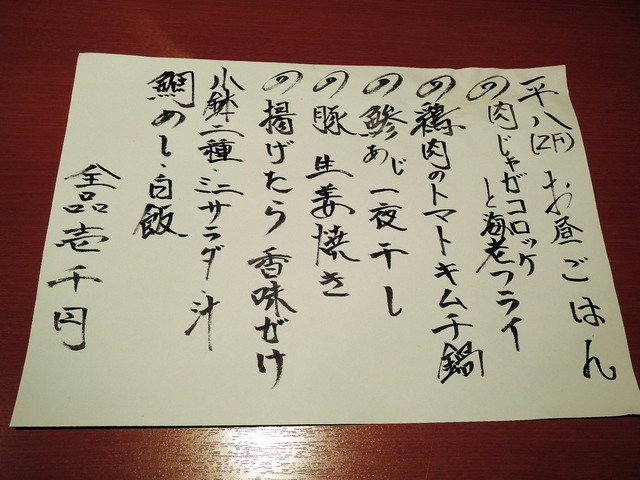 平八(2F)お昼ごはん
の肉じゃがコロッケ
と海老フライ
の鶏肉のトマトキムチ鍋
の鯵あじ一夜干し
の豚生姜焼き
の揚げたら香味がけ
小鉢二種・ミニサラダ・汁
鯛めし・白飯
全品壱千円